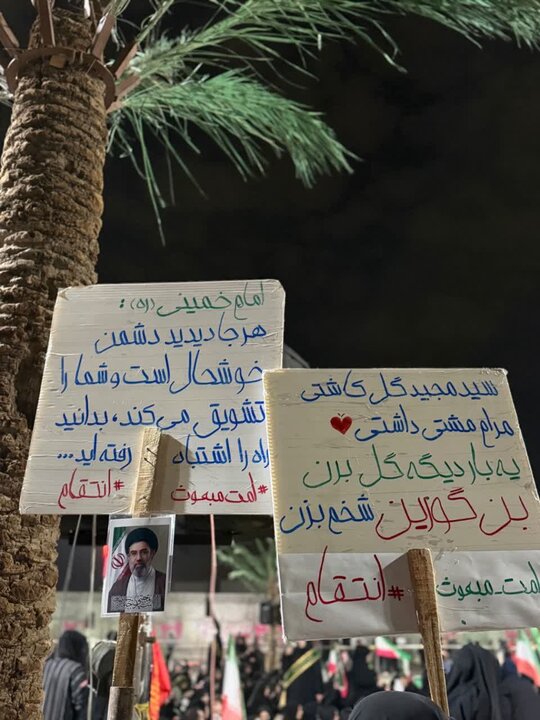 امام خمینی (ره):
هرجا دیدید دشمن
خوشحال است و شما را
تشویق می‌کند، بدانید
راه را اشتباه رفته‌اید...
#امت مبعوث #انتقام
سید مجید گل کاشتی
مرام مشتی داشتی
یه بار دیگه گل بزن
بن گورین شخم بزن
#انتقام امت_مبعوث